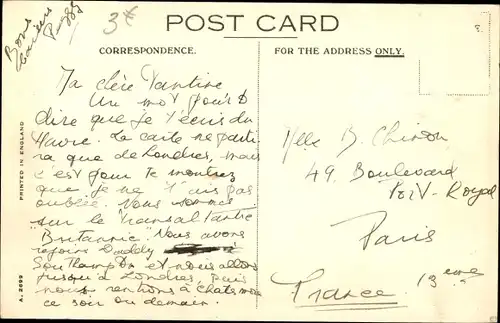 Bons
baisers
Peggy
3€
POST CARD
CORRESPONDENCE.
FOR THE ADDRESS ONLY.
Ma chère Tantine
Un mot pour te
dire que je t'écris du
Havre. La carte ne parti
ra que de Londres, mais
c'est pour te montrer
que je ne t'ais pas
oubliée. Nous sommes
sur le transatlantic
"Britannic". Nous avons
rejoint Daddy
Southampton et nous allons
jusqu'à Londres, puis
nous rentrons à
ce soir ou demain.
Mlle B. Chinon
49. Boulevard
Port-Royal
Paris
13ème
France
PRINTED IN ENGLAND
A. 2099